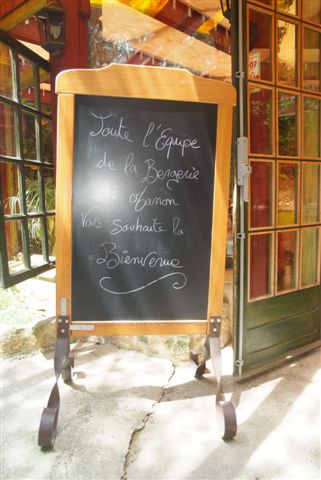 Toute l'Equipe
de la Bergerie
de Manon
Vous Souhaite la
Bienvenue